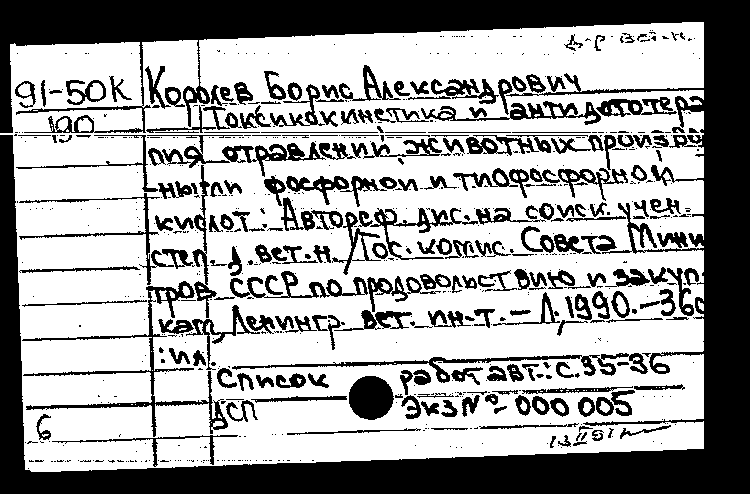 д-р вет.н.
91-50К Королев Борис Александрович
190 Токсикокинетика и антидототера
пия отравлений животных произво
-ными фосфорной и тиофосфорной
кислот : Автореф. дис. на соиск. учен.
степ. д. вет. н. /Гос. комис. Совета Мини
тров СССР по продовольствию и закуп-
кам, Ленингр. вет. ин-т. – Л., 1990. – 36с
: ил.
Список работ авт.: с. 35-36
ДСП Экз № 000 005
6